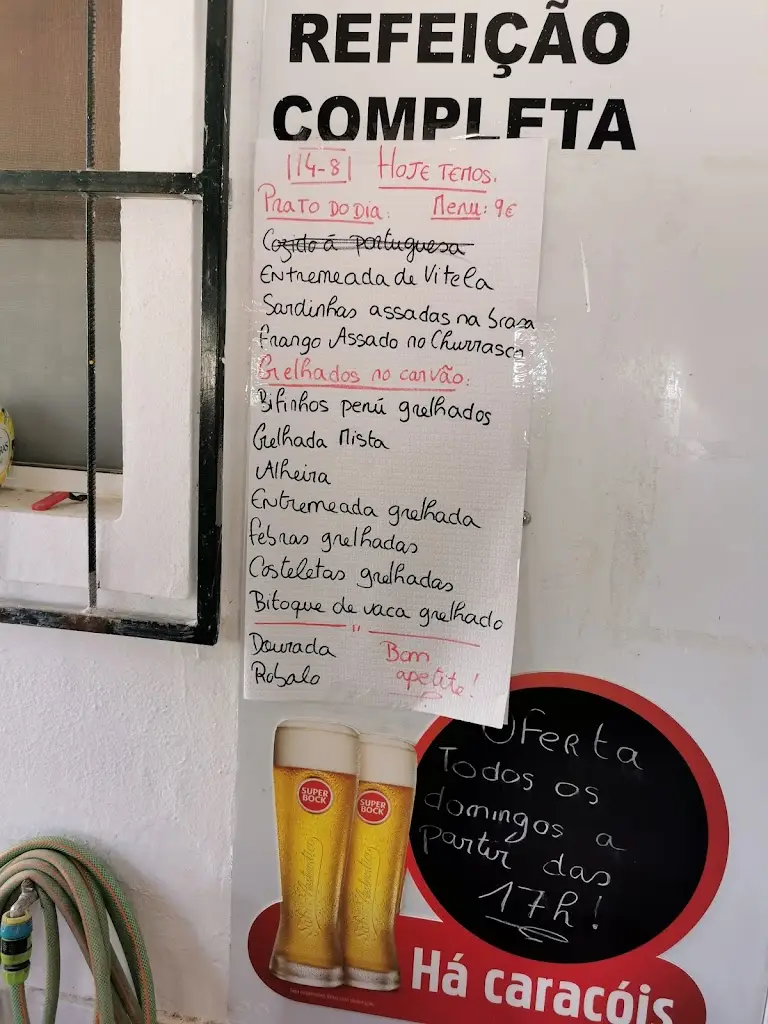 REFEIÇÃO
COMPLETA
|14-8| HOJE TEMOS.
PRATO DO DIA: Menu: 9€
Cozido á portuguesa
Entremeada de Vitela
Sardinhas assadas na brasa
Frango Assado no Churrasco
Grelhados no carvão:
Bifinhos perú grelhados
Grelhada Mista
Alheira
Entremeada grelhada
Febras grelhadas
Costeletas grelhadas
Bitoque de vaca grelhado
Dourada Bom
Robalo apetite!
Oferta
Todos os
domingos a
partir das
17h!
SUPER BOCK SUPER BOCK
Há caracóis